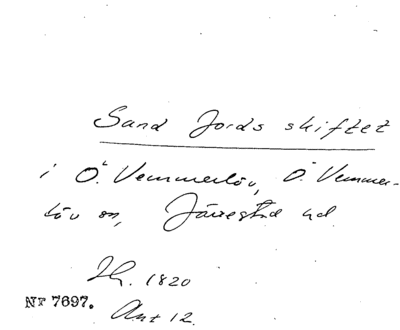 Sand Jords skiftet
i Ö. Vemmerlöv, Ö. Vemmer-
löv sn, Järrestad hd.
1820
Nr 7697.
Akt 12.